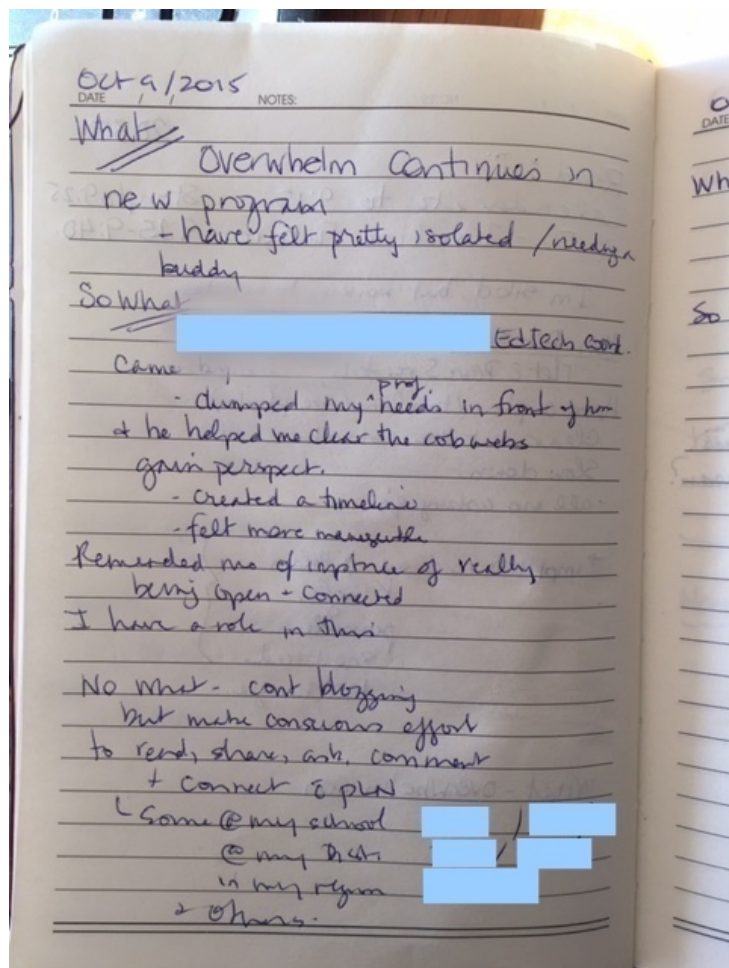 Oct 9/2015
DATE / / NOTES:
What
Overwhelm continues in
new program
- have felt pretty isolated / needing a
buddy
So What
EdTech Coord.
Came
prof.
- dumped my ^ needs in front of him
+ he helped me clear the cobwebs
gain perspect.
- created a timeline
- felt more
Reminded me of imptnce of really
being open + connected
I have a role in this
No What - cont blogging
but make conscious effort
to read, share, ask, comment
+ connect c̄ PLN
Some @ my school /
@ my Dist. /
in my region
+ others.
O
DATE
Wh
So